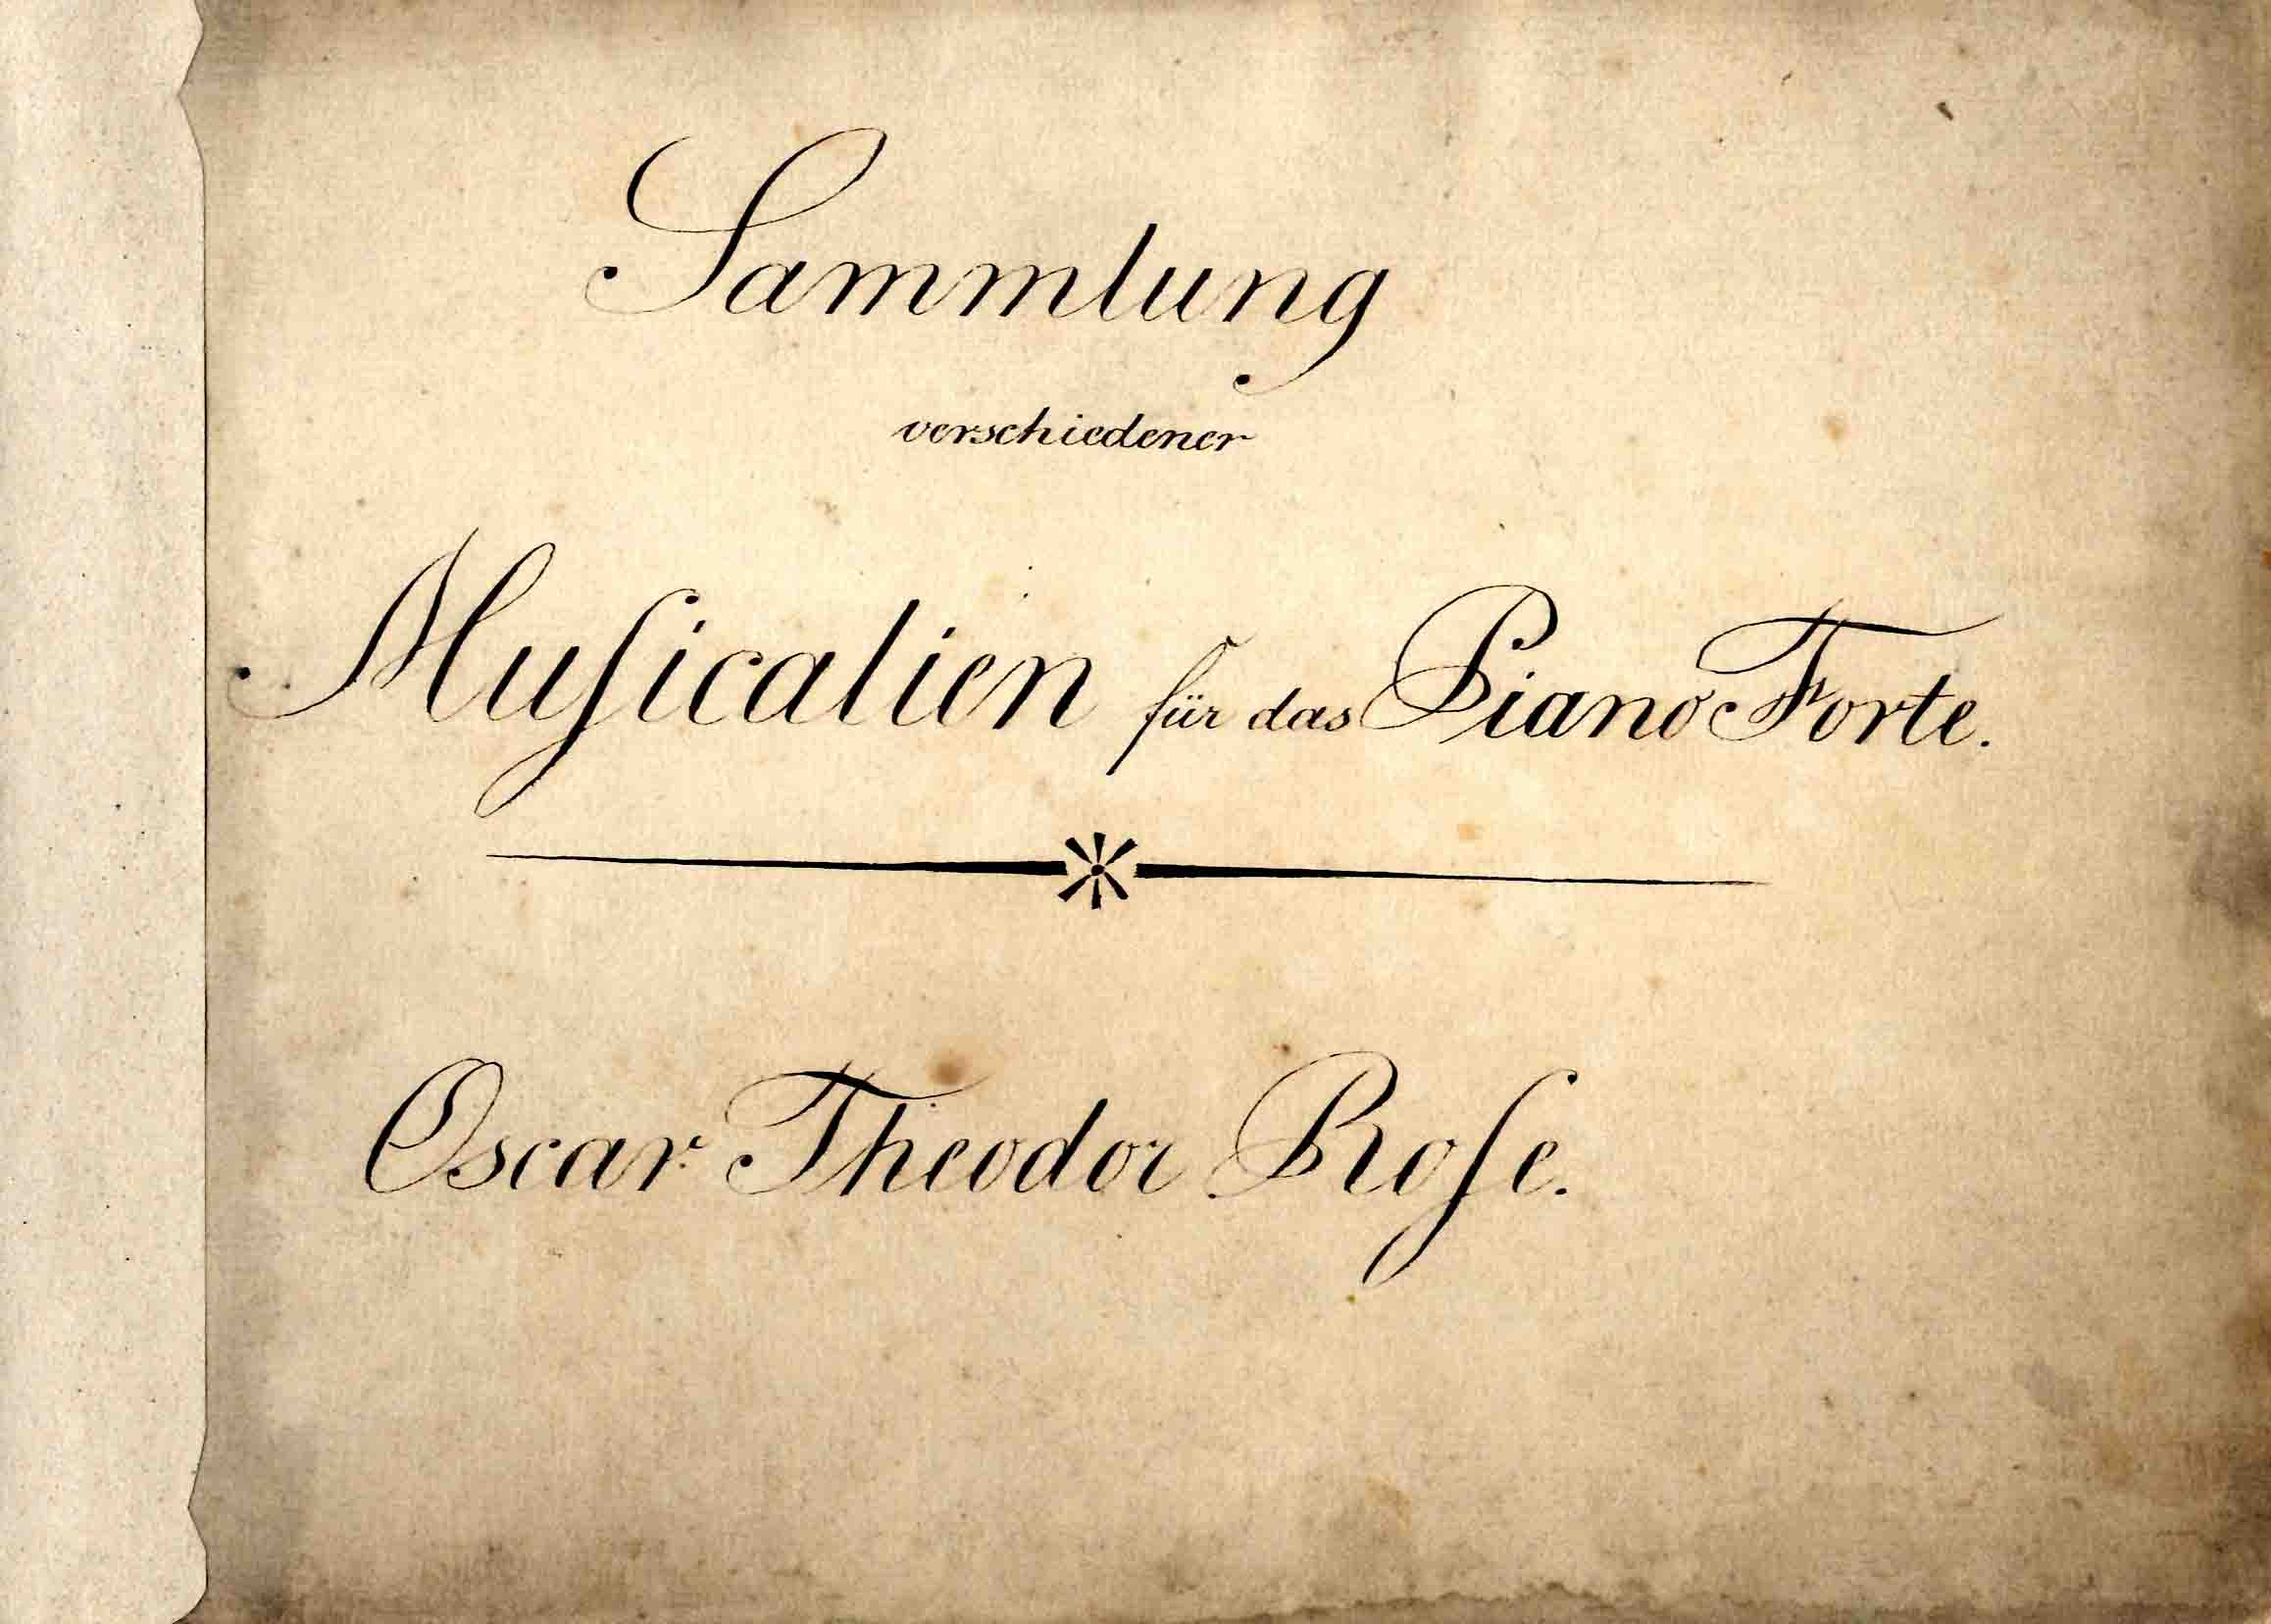 Sammlung
verschiedener
Muſicalien für das Piano Forte.
Oscar Theodor Roſe.